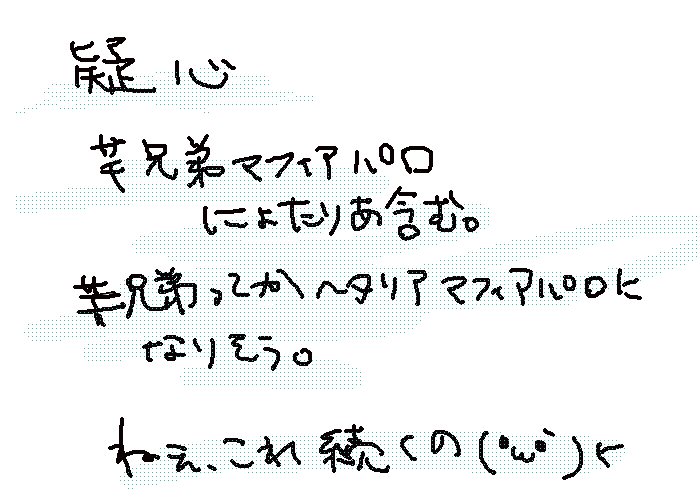 疑心
芋兄弟マフィアパロ
にょたりあ含む。
芋兄弟ってかヘタリアマフィアパロに
なりそう。
ねぇ、これ続くの(°ω°)て